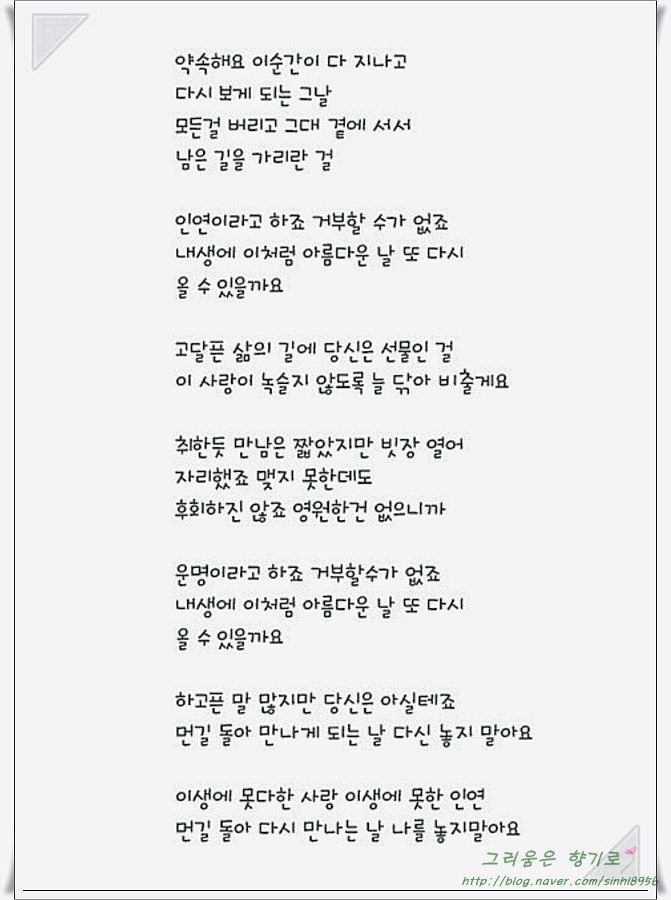 약속해요 이순간이 다 지나고
다시 보게 되는 그날
모든걸 버리고 그대 곁에 서서
남은 길을 가리란 걸
인연이라고 하죠 거부할 수가 없죠
내생에 이처럼 아름다운 날 또 다시
올 수 있을까요
고달픈 삶의 길에 당신은 선물인 걸
이 사랑이 녹슬지 않도록 늘 닦아 비출게요
취한듯 만남은 짧았지만 빗장 열어
자리했죠 맺지 못한데도
후회하진 않죠 영원한건 없으니까
운명이라고 하죠 거부할수가 없죠
내생에 이처럼 아름다운 날 또 다시
올 수 있을까요
하고픈 말 많지만 당신은 아실테죠
먼길 돌아 만나게 되는 날 다신 놓지 말아요
이생에 못다한 사랑 이생에 못한 인연
먼길 돌아 다시 만나는 날 나를 놓지말아요
그리움은 향기로
http://blog.naver.com/sinhl8956